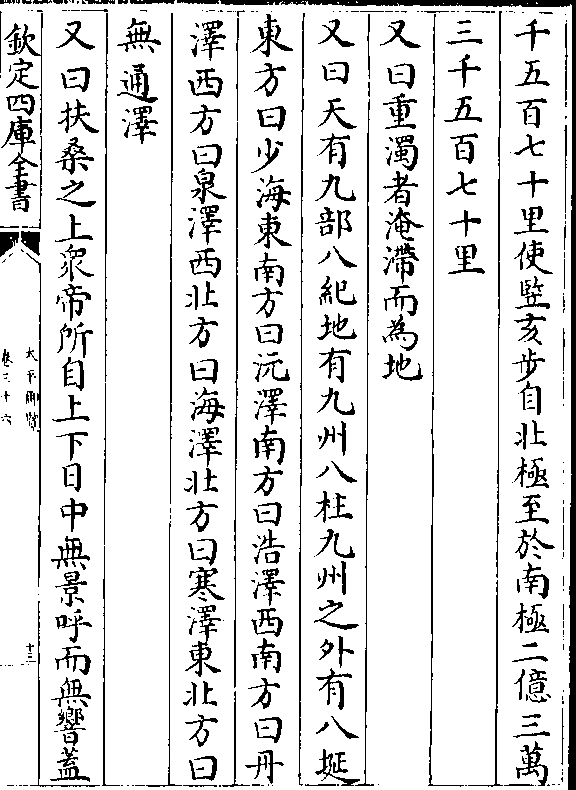 千五百七十里使竪亥步自北極至於南極二億三萬
三千五百七十里
又曰重濁者淹滯而為地
又曰天有九部八紀地有九州八柱九州之外有八埏
東方曰少海東南方曰沅澤南方曰浩澤西南方曰丹
澤西方曰泉澤西北方曰海澤北方曰寒澤東北方曰
無通澤
又曰扶桑之上衆帝所自上下日中無景呼而無響蓋
欽定四庫全書
太平御覽
卷三十六
十三